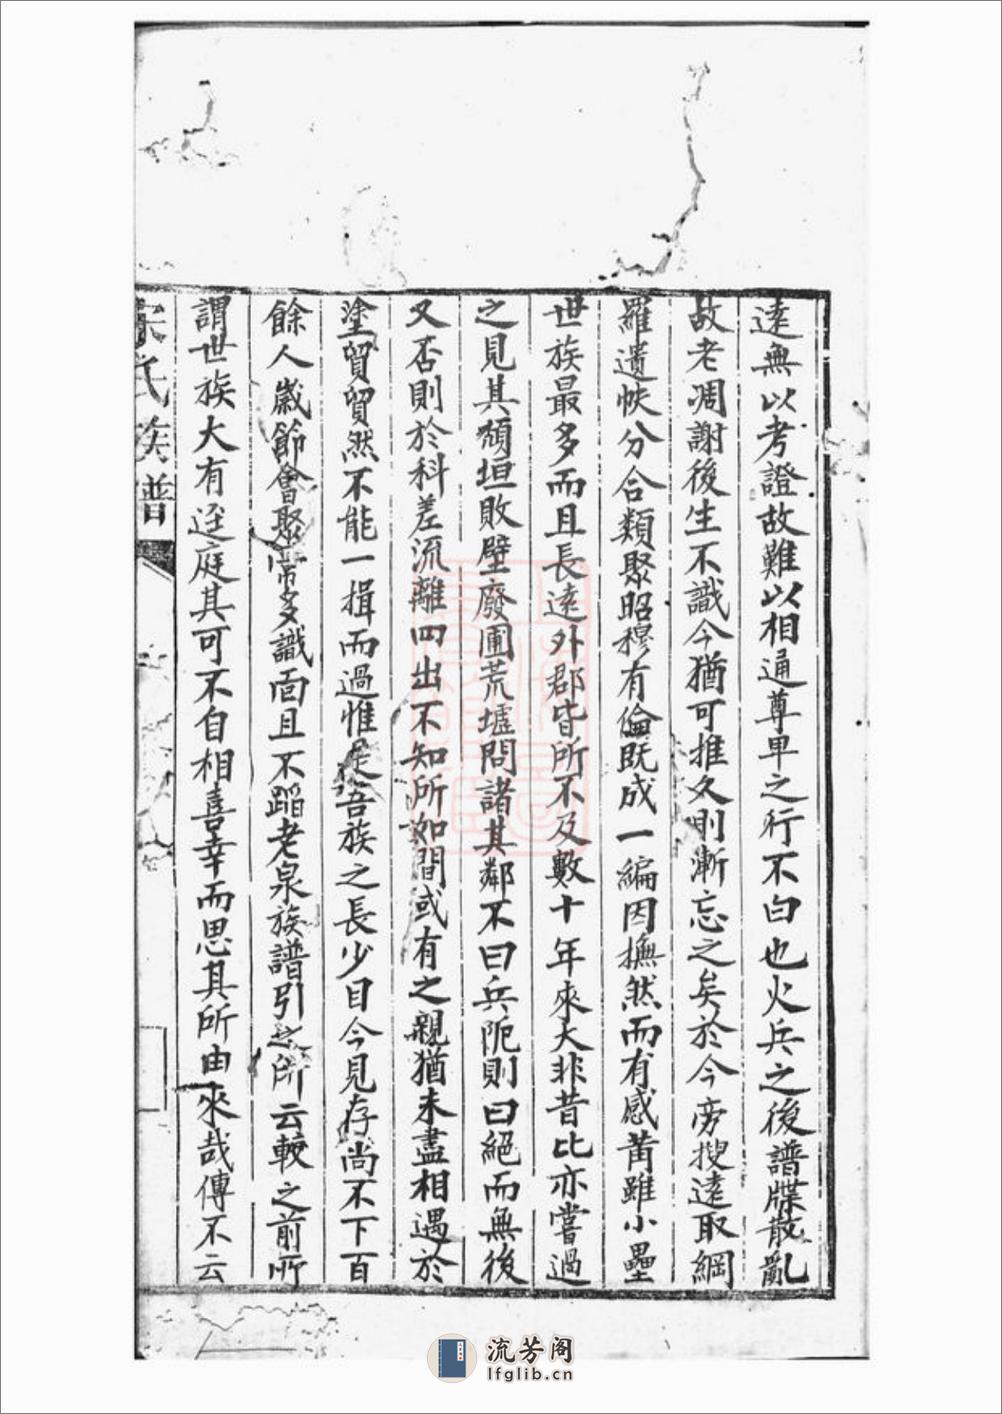 遠無以考證故難以相通尊卑之行不白也火兵之後譜牒散亂
故老凋謝後生不識今猶可推久則漸忘之矣於今旁搜遠取網
羅遺帙分合類聚昭穆有倫既成一編因撫然而有感莆雖小壘
世族最多而且長遠外郡皆所不及數十年來大非昔比亦嘗過
之見其頹垣敗壁廢圃荒墟問諸其鄰不曰兵阨則曰絕而無後
又否則於科差流離四出不知所如間或有之親猶未盡相遇於
塗貿貿然不能一揖而過惟是吾族之長少目今見存尚不下百
餘人歲節會聚常多識面且不蹈老泉族譜引之所云較之前所
謂世族大有逕庭其可不自相喜幸而思其所由來哉傳不云
宋氏族譜
流芳阁
lfglib.cn